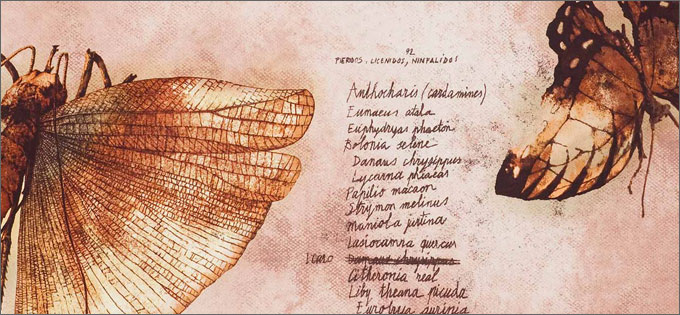 92
PIERIDOS, LICENIDOS, NINFALIDOS
Anthocharis (cardamines)
Eumaeus atala
Euphydryas phaeton
Bolonia selene
Danaus chrysippus
Lycaena phlaeas
Papilio macaon
Strymon melinus
Maniola jurtina
Lasiocampa quercus
Icaro Danaus chrysippus
Citheronia real
Liby theana picuda